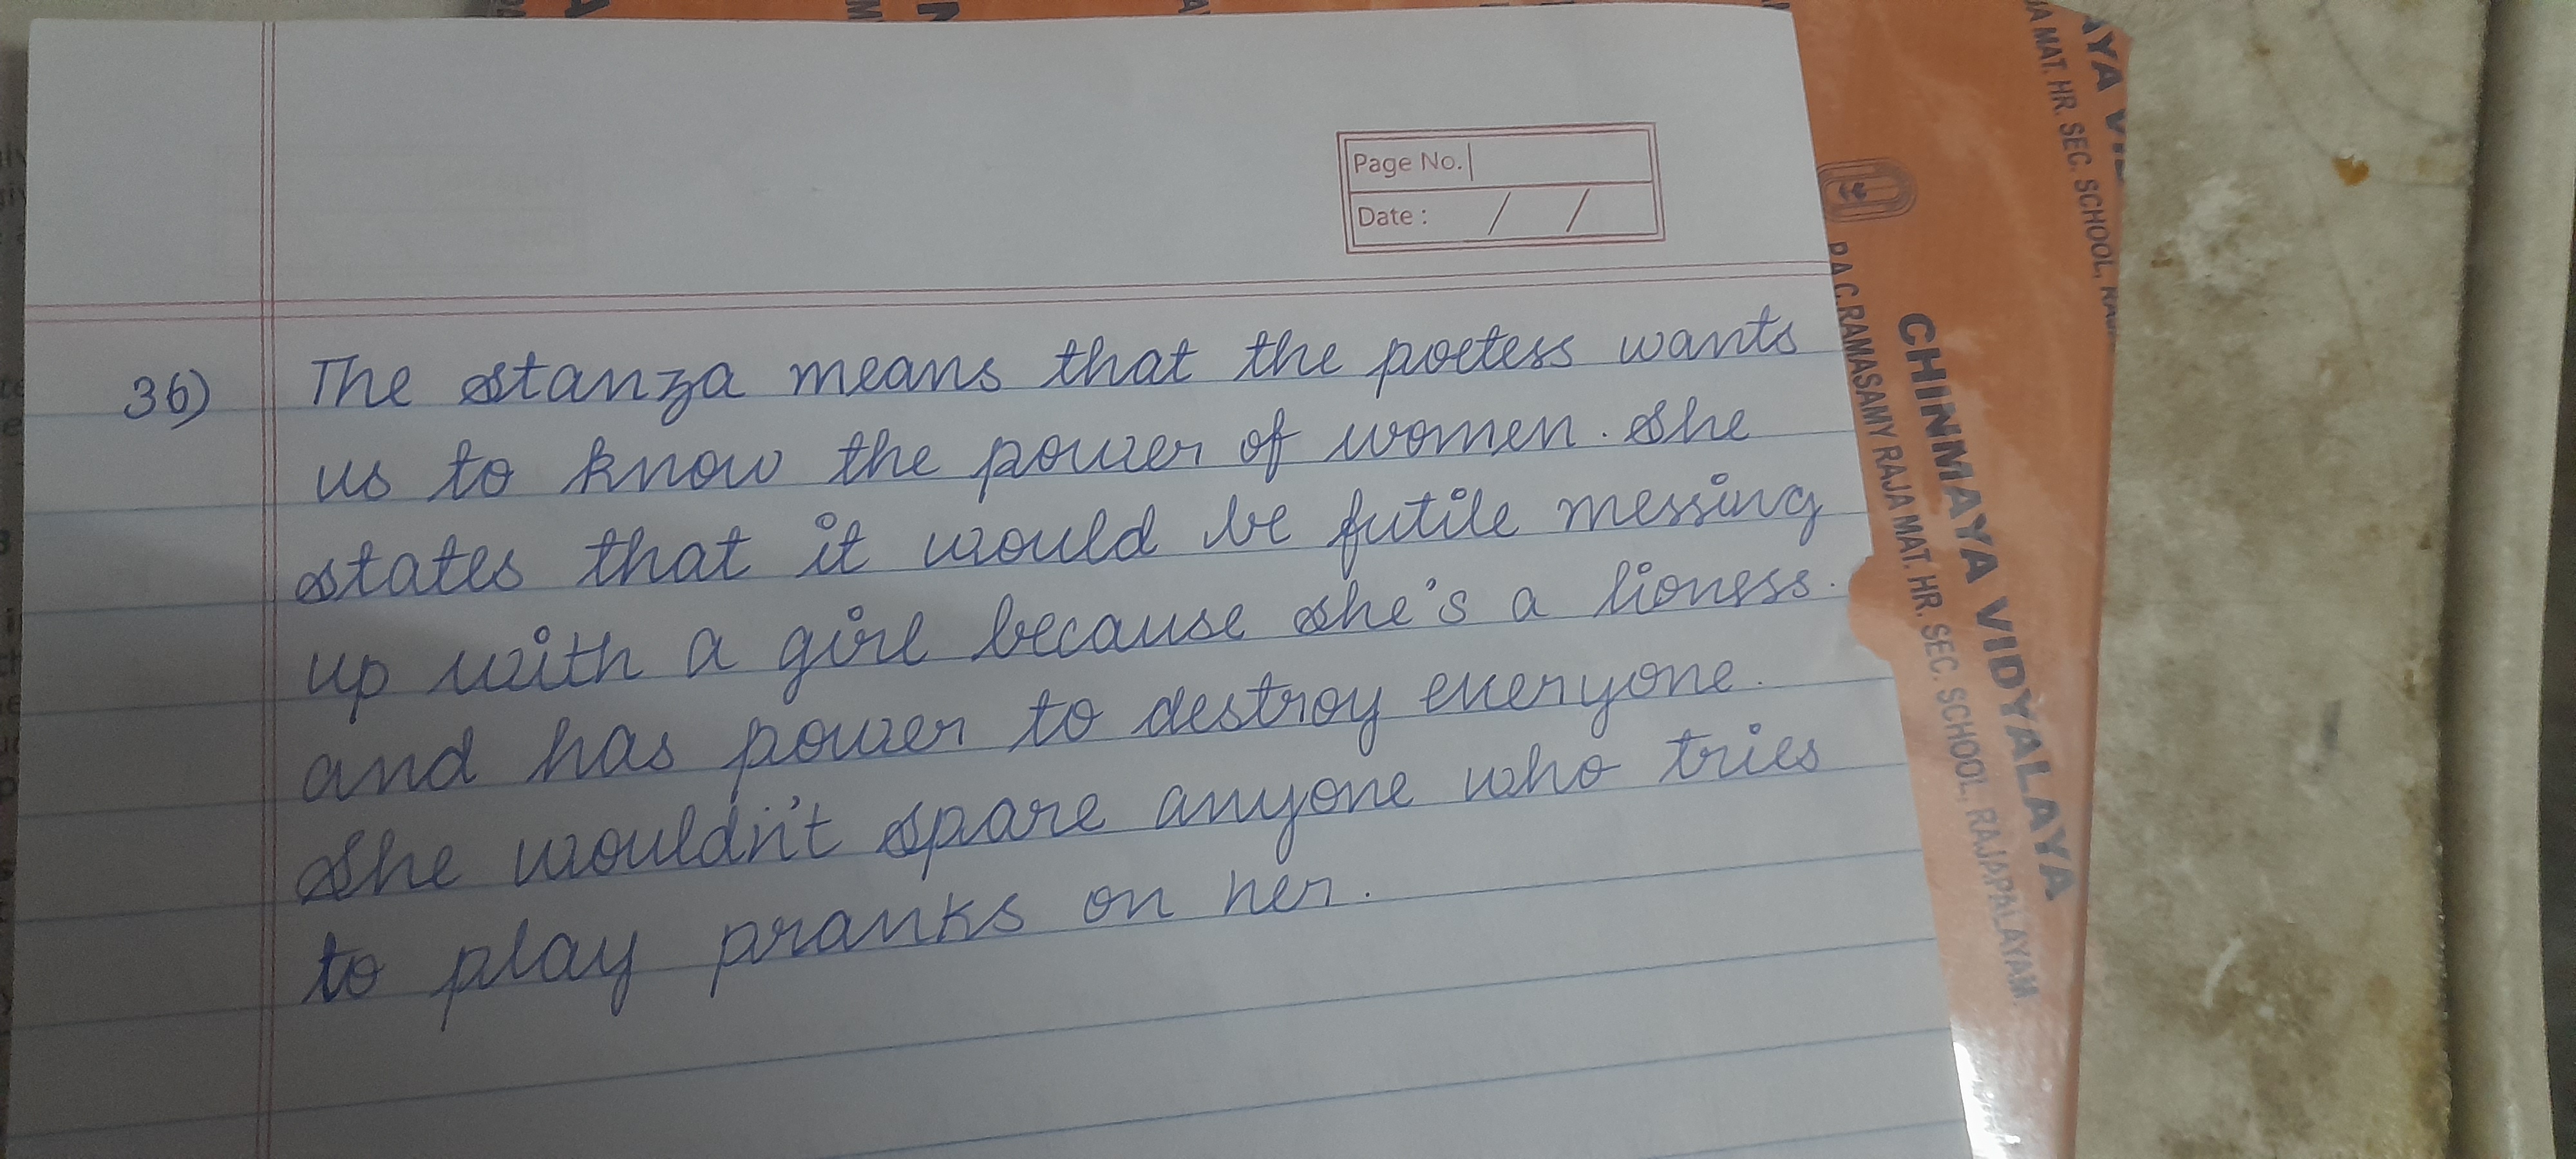 Page No.
Date : / /
36) The stanza means that the poetess wants
us to know the power of women. She
states that it would be futile messing
up with a girl because she's a lioness.
and has power to destroy everyone.
She wouldn't spare anyone who tries
to play pranks on her.
CHINMAYA VIDYALAYA
P.A.C.RAMASAMY RAJA MAT. HR. SEC. SCHOOL, RAJAPALAYAM
AYA VID
JA MAT. HR. SEC. SCHOOL, RAJA